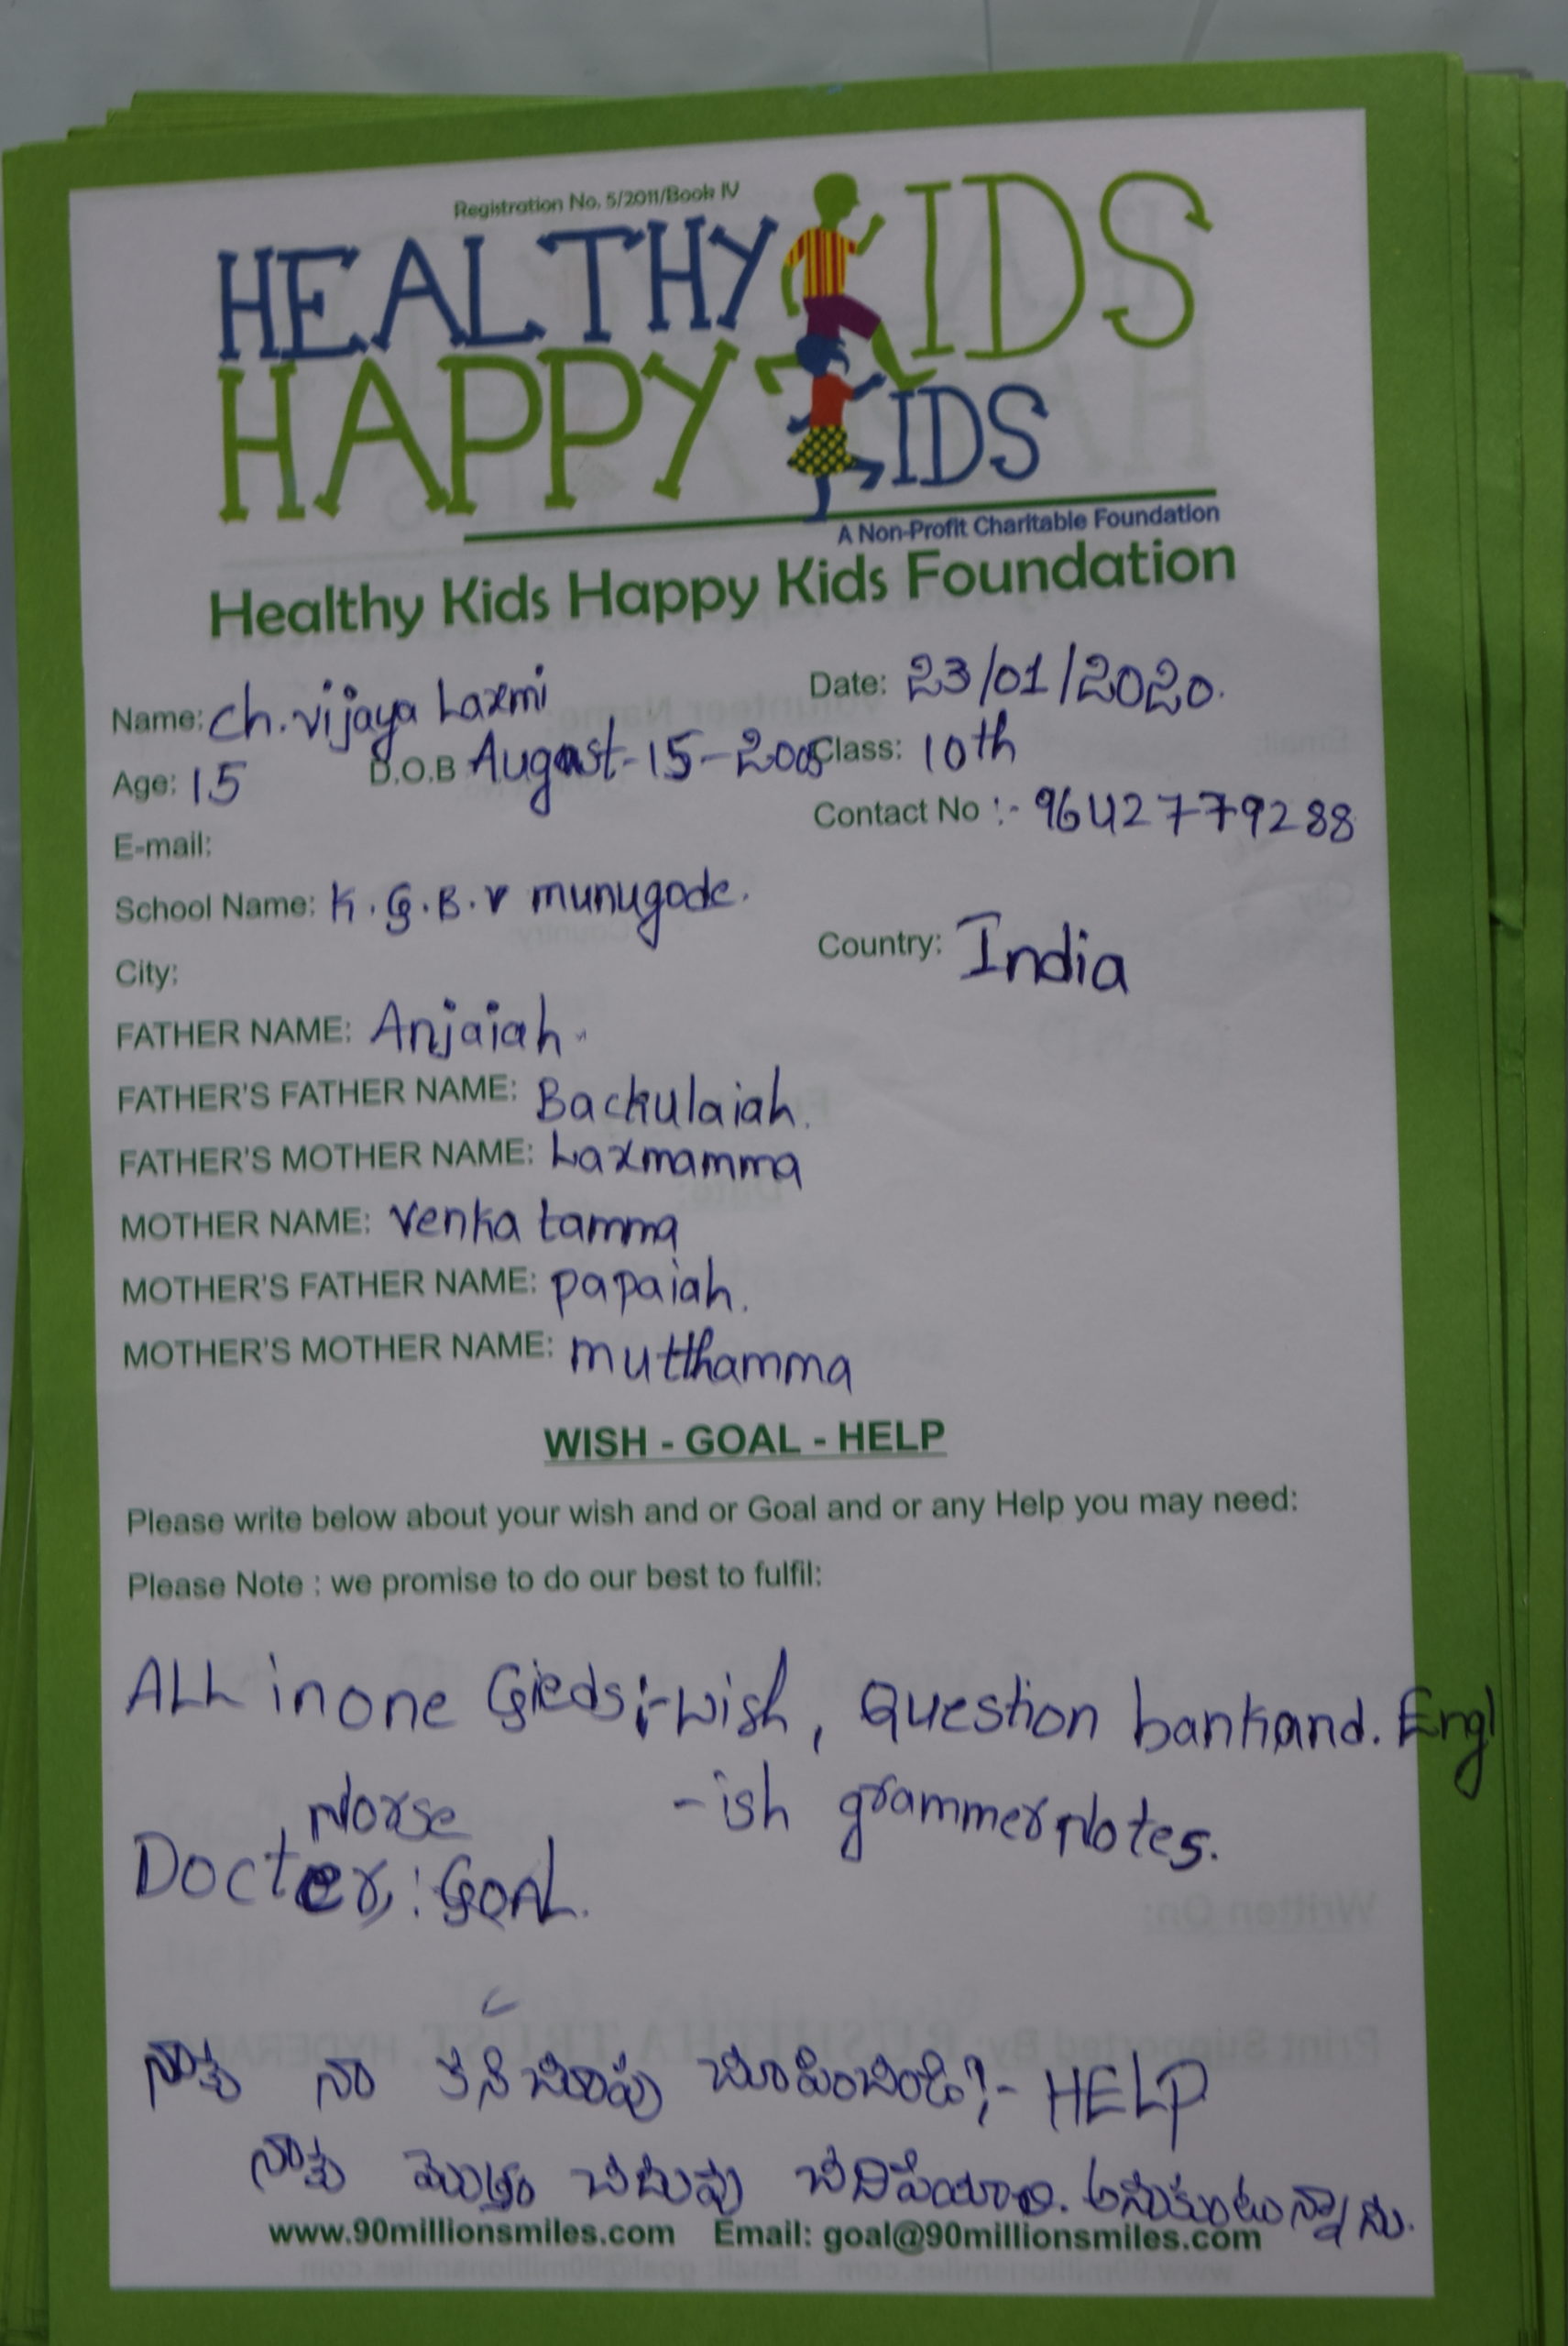 Registration No. 5/2011/Book IV
HEALTHY KIDS
HAPPY KIDS
A Non-Profit Charitable Foundation
Healthy Kids Happy Kids Foundation
Name: Ch. vijaya Laxmi Date: 23/01/2020.
Age: 15 D.O.B August-15-2005 Class: 10th
E-mail: Contact No :- 9642779288
School Name: K.G.B.V munugode.
City: Country: India
FATHER NAME: Anjaiah.
FATHER'S FATHER NAME: Backulaiah.
FATHER'S MOTHER NAME: Laxmamma
MOTHER NAME: Venka tamma
MOTHER'S FATHER NAME: papaiah.
MOTHER'S MOTHER NAME: mutthamma
WISH - GOAL - HELP
Please write below about your wish and or Goal and or any Help you may need:
Please Note : we promise to do our best to fulfil:
ALL in one Gieds:-wish, Question bank and. Engl
-ish grammer Notes.
Norse
Docter,: GoAL.
నాకు నా చూపు చూపించండి?- HELP
నాకు మొత్తం చదువు అనుకుంటున్నాను.
www.90millionsmiles.com Email: goal@90millionsmiles.com